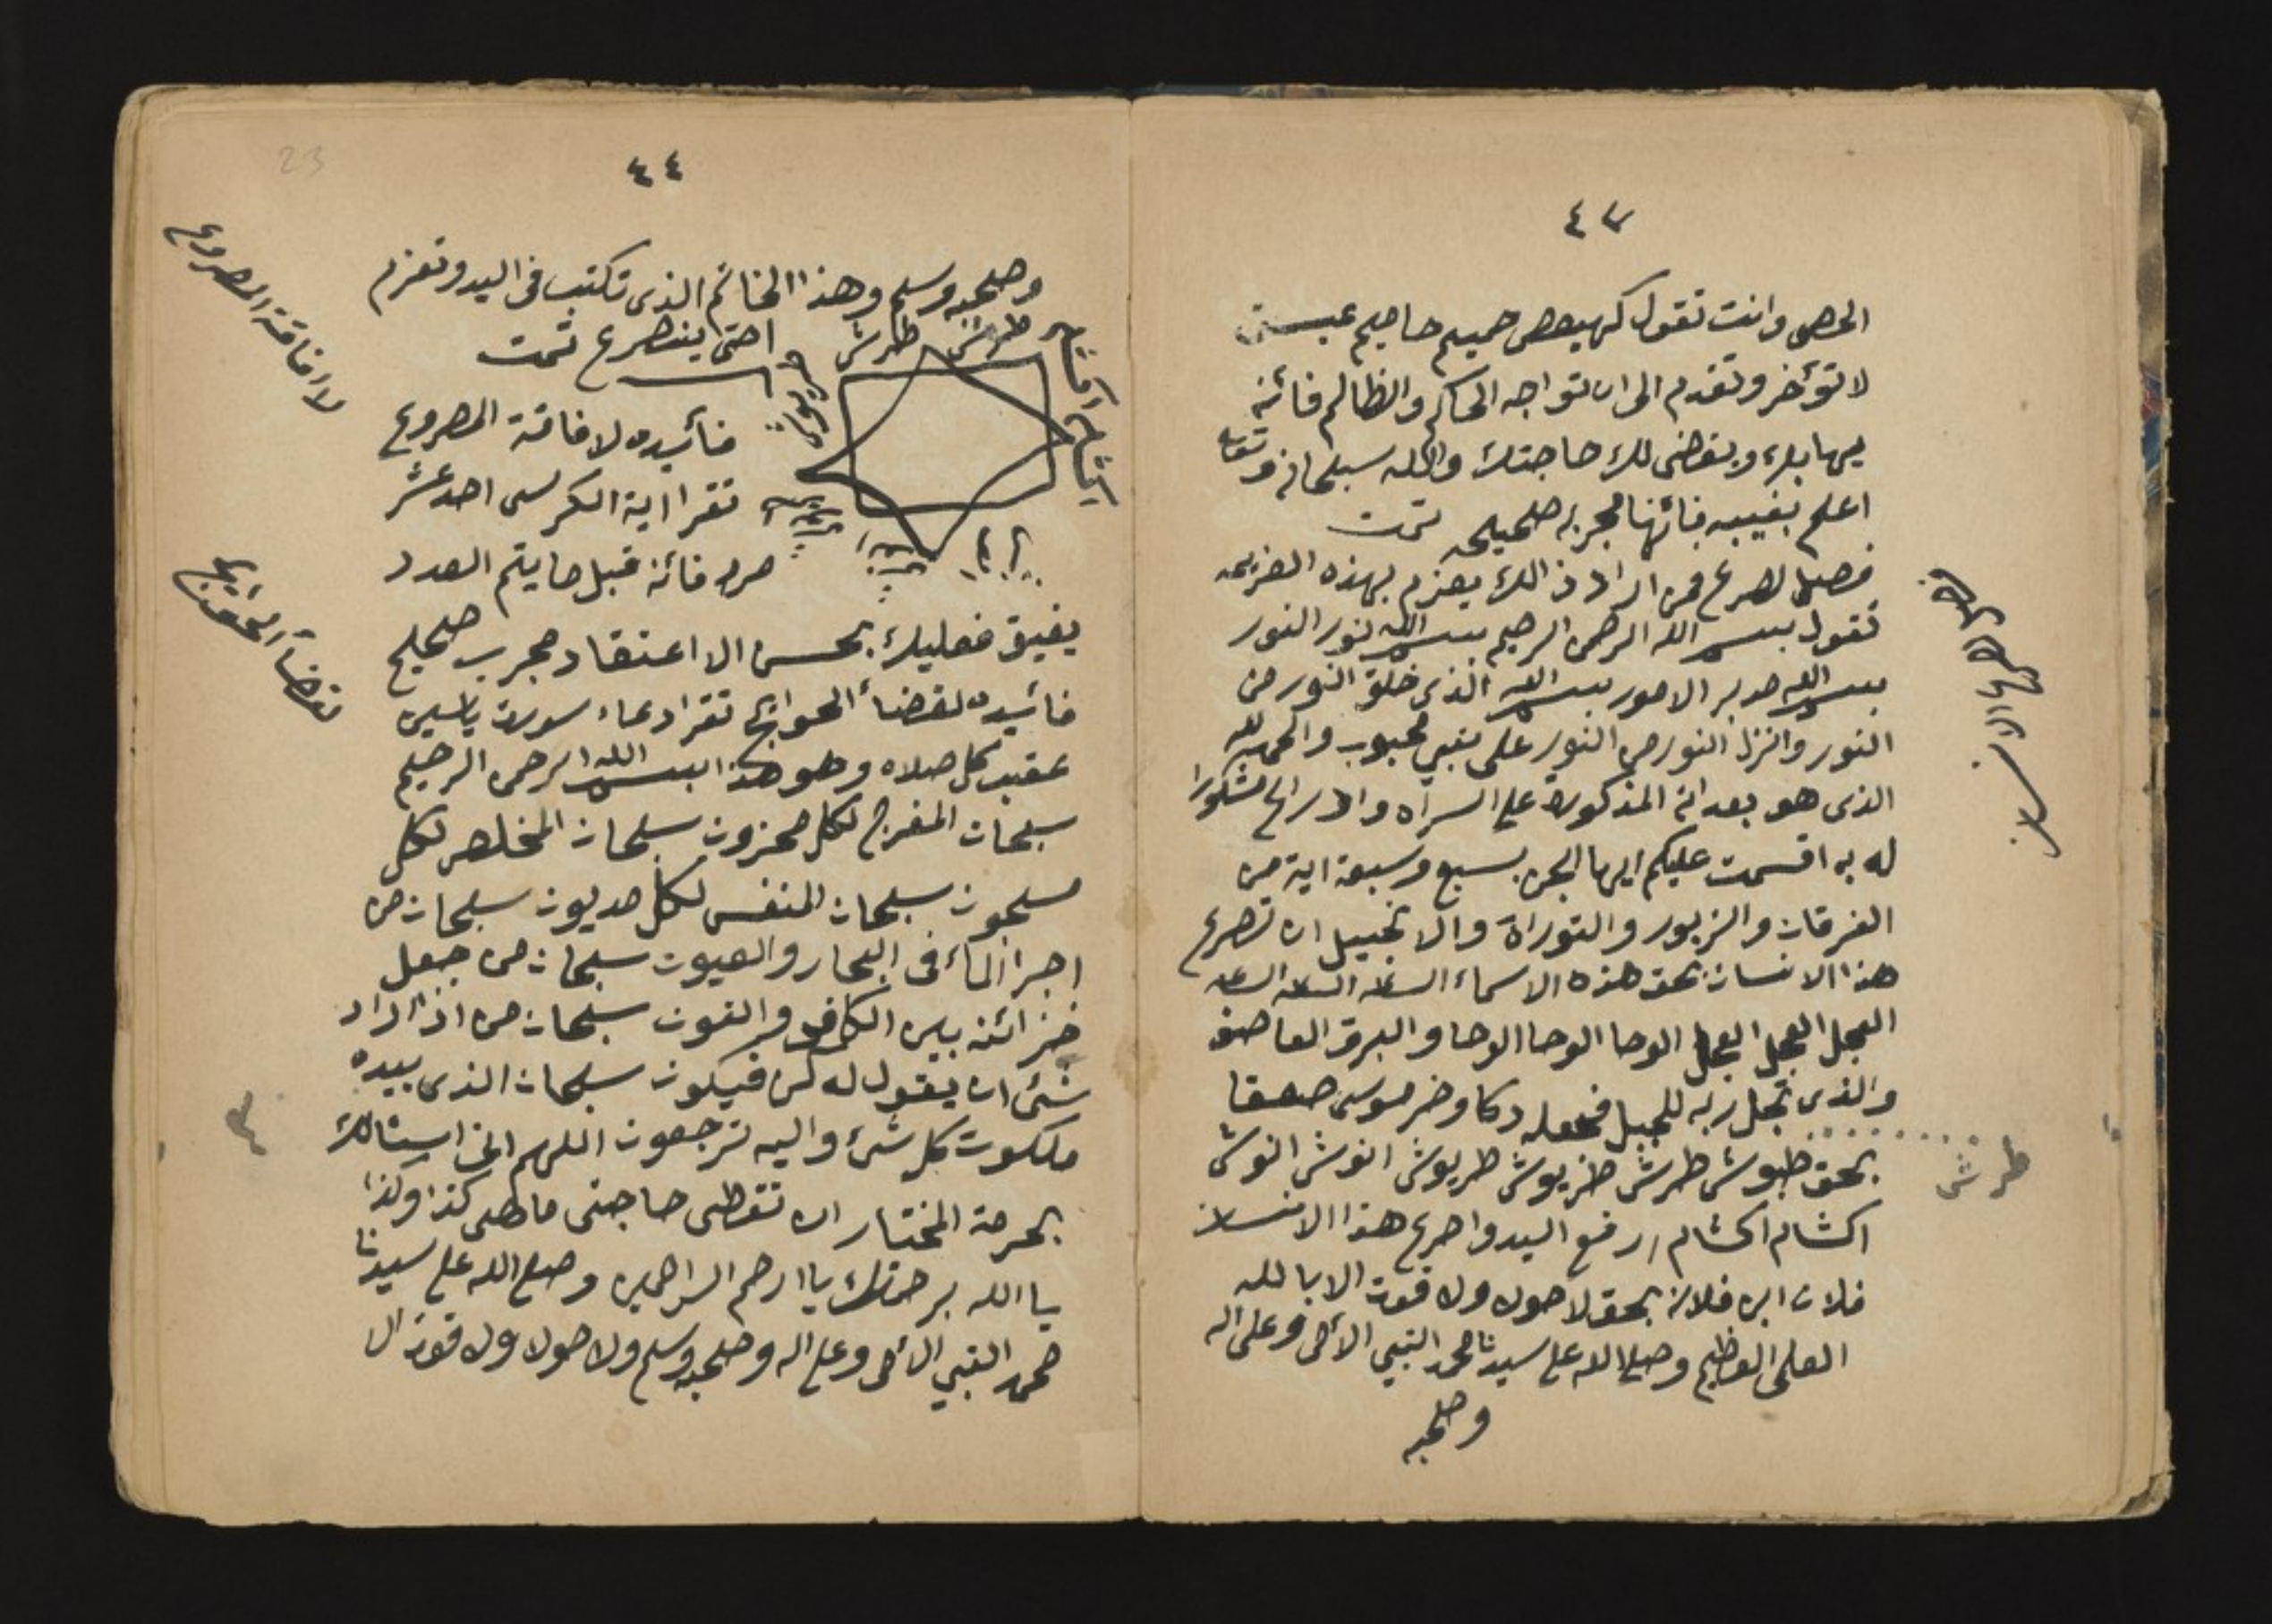 ٤٣
الحصى وانت تقول كهيعص حميم حاميم عيسق
لا تؤخر وتقدم الى ان تواجه الحاكم والظالم فائنه
يهابك ويقضى لك حاجتك والله سبحانه وتعا
اعلم بغيبه فائنها مجربه صحيحه تمت
فصل لصرع فمن اراد ذالك يعزم بهذه العزيمه
تقول بسم الله الرحمن الرحيم بسم الله نور النور
بسم الله مدبر الامور بسم الله الذى خلق النور من
النور وانزل النور من النور على نبي محبوب والحمد لله
الذى هو بعد انه المذكورة على السرآه
له به اقسمت عليكم ايها الجن بسبع وسبعة اية من
الفرقان والزبور والتوراة والانجيل ان تصرع
هذا الانسان بحق هذه الاسماء الساعه الساعه الساعه
العجل العجل العجل الوحا الوحا الوحا والبرق العاصف
والذى تجل ربه للجبل فجعله دكا وخر موسى صعقا
بحق طبوش طرش طربوش طربوش انوش انوش
طرش
اكشام اكشام ارفع اليد واصرع هذا الانسان
فلان ابن فلانه بحق لا حول ولا قوت الا بالله
العلى العظيم وصلى الله على سيدنا محمد النبي الأمى وعلى اله
وصحبه
لصرع الانسان
٤٤
23
وصحبه وسلم وهذا الخاتم الذى تكتب فى اليد وتعزم
احتى ينصرع تمت
طرش طرش
فائيده لافاقة المصروع
تقرا اية الكرسى احدعشر
مره فائنه قبل ما يتم العدد
يفيق فعليك بحسن الاعتقاد مجرب صحيح
فائيده لقضاء الحوائج تقرا دعاء سورة ياسين
عقب كل صلاه وهو هذا بسم الله الرحمن الرحيم
سبحان المفرج لكل محزون سبحان المخلص لكل
مسجون سبحان المنفس لكل مديون سبحان من
اجرا الماء فى البحار والعيون سبحان من جعل
خزائنه بين الكاف والنون سبحان من اذا اراد
شئ ان يقول له كن فيكون سبحان الذى بيده
ملكوت كل شئ واليه ترجعون اللهم انى اسئالك
بحرمة المختار ان تقضى حاجتى ماهى كذا وكذا
يا الله برحمتك يا ارحم الراحمين وصلى الله على سيدنا
محمد النبي الأمى وعلى اله وصحبه وسلم ولا حول ولا قوت الا
لا افاقة المصروع
لقضاء الحوائج